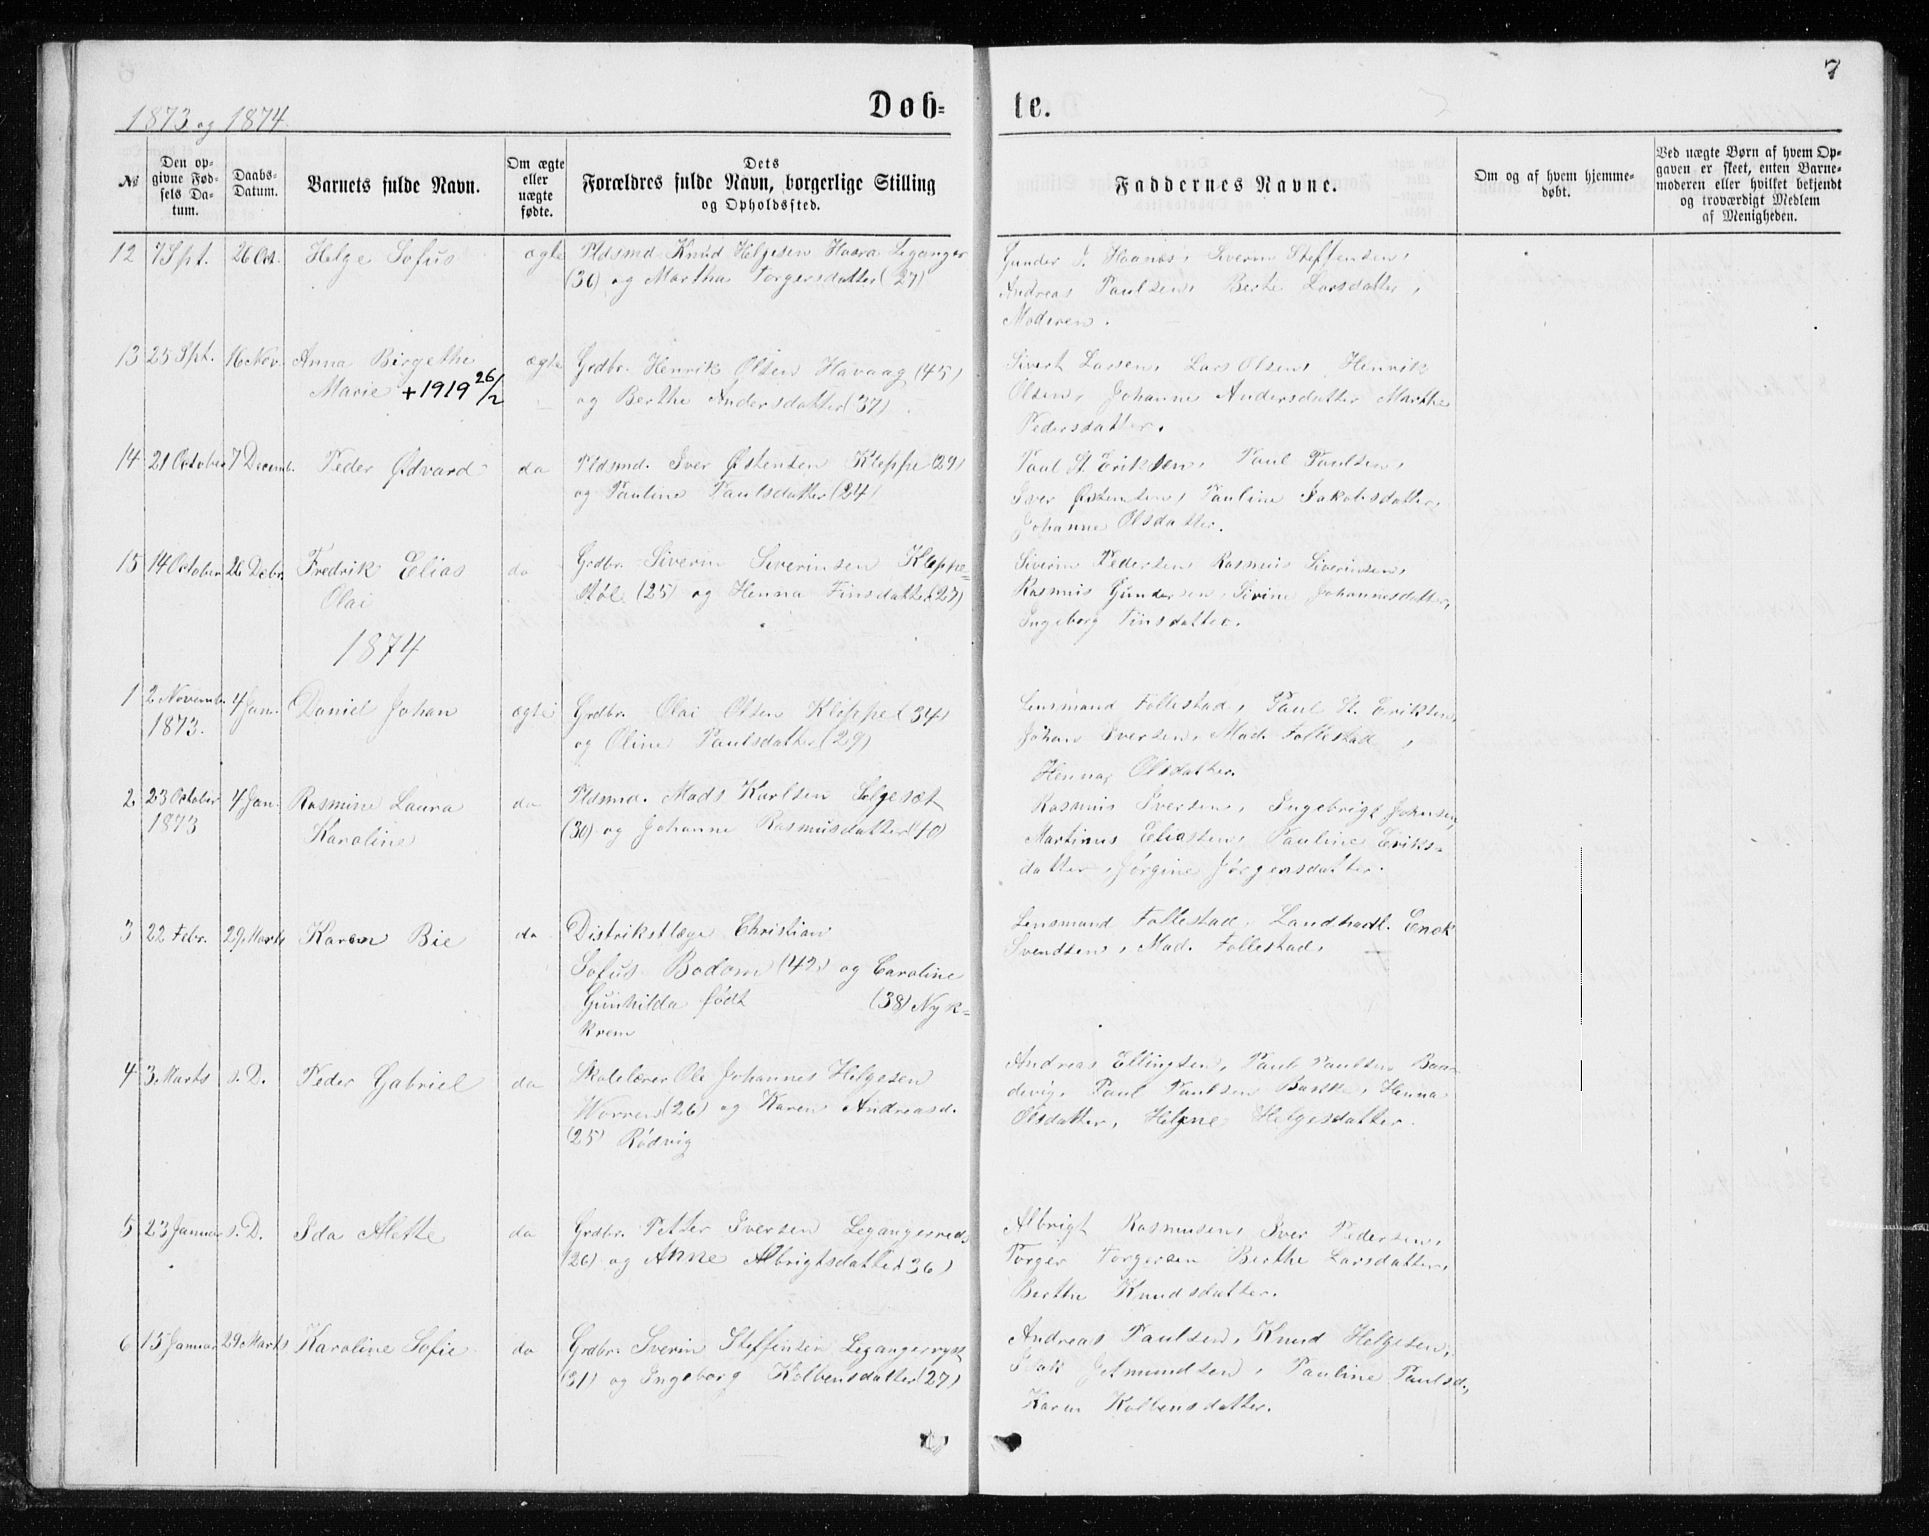 7
1873 og 1874.
Døb-
te.
No
Den op-
givne Fød-
sels Da-
tum.
Daabs-
Datum.
Barnets fulde Navn.
Om ægte
eller
uægte
fødte.
Dets
Forældres fulde Navn, borgerlige Stilling
og Opholdssted.
Faddernes Navne.
Om og af hvem hjemme-
døbt.
Ved uægte Børn af hvem Op-
gaven er skeet, enten Barne-
moderen eller hvilket bekjendt
og troværdigt Medlem
af Menigheden.
12 7 Spt. 26 Oct. Helge Sofus ægte Pldsmd. Knud Helgesen Haara Leganger
(36) og Martha Torgersdatter (27)
Gunder J. Haanæs, Siverin Steffensen,
Andreas Paulsen, Berte Larsdatter,
Moderen.
13 25 Spt. 16 Nov. Anna Birgethe ægte Grdbr. Henrik Olsen Havaag (45)
Marie +1919 26/2 og Berthe Andersdatter (37)
Sivert Larsen, Lars Olsen, Henrik
Olsen, Johanne Andersdatter Marthe
Pedersdatter.
14 21 October 7 Decemb. Peder Edvard do Pldsmd. Iver Østensen Kleppe (29)
og Pauline Paulsdatter (24)
Paul St. Eriksen, Paul Paulsen,
Iver Østensen, Pauline Jakobsdatter,
Johanne Olsdatter.
15 14 October 26 Decbr. Fredrik Elias do Grdbr. Siverin Siverinsen Kleppe-
Olai støl (25) og Henna Finsdatter (27)
Siverin Pedersen, Rasmus Siverinsen,
Rasmus Gundersen, Sirine Johannesdatter,
Ingeborg Finsdatter.
1874
1 2 Novemb. 4 Jan. Daniel Johan ægte Grdbr. Olai Olsen Kleppe (34)
1873. og Oline Paulsdatter (29)
Lensmand Follestad, Paul St. Eriksen,
Johan Iversen, Mad. Follestad,
Henna, Olsdatter.
2 23 October 4 Jan. Rasmine Laura do Pldsmd. Mads Karlsen Selgesæt
1873 Karoline (30) og Johanne Rasmusdatter (40)
Rasmus Iversen, Ingebrigt Johnsen,
Martinus Eliassen, Pauline Eriks-
datter, Jørgine Jørgensdatter.
3 22 Febr. 29 Marts Karen Bie do Distriktslæge Christian
Sofus Bodom (42) og Caroline
Gunhilda født (38) Nyk-
krem
Lensmand Follestad. Landhadl. Enok
Svendsen, Mad. Follestad,
4 3 Marts s. D. Peder Gabriel do Skolelærer Ole Johannes Helgesen
Worren (26) og Karen Andreasd.
(25) Rødvig
Andreas Ellingsen, Paul Paulsen Baa-
devig, Paul Paulsen Bakke, Henna
Olsdatter, Helene Helgesdatter.
5 23 Januar s. D. Ida Alette do Grdbr. Petter Iversen Legangerneds
(26) og Anne Albrigtsdatter (36)
Albrigt Rasmusen, Iver Pedersen,
Torger Torgersen Berthe Larsdatter,
Berthe Knudsdatter.
6 15 Januar 29 Marts Karoline Sofie do Grdbr. Sverin Steffensen Legangeryst
(31) og Ingeborg Kolbensdatter (27)
Andreas Paulsen, Knud Helgesen,
Isak Jetmundsen, Pauline Paulsd.,
Karen Kolbensdatter.